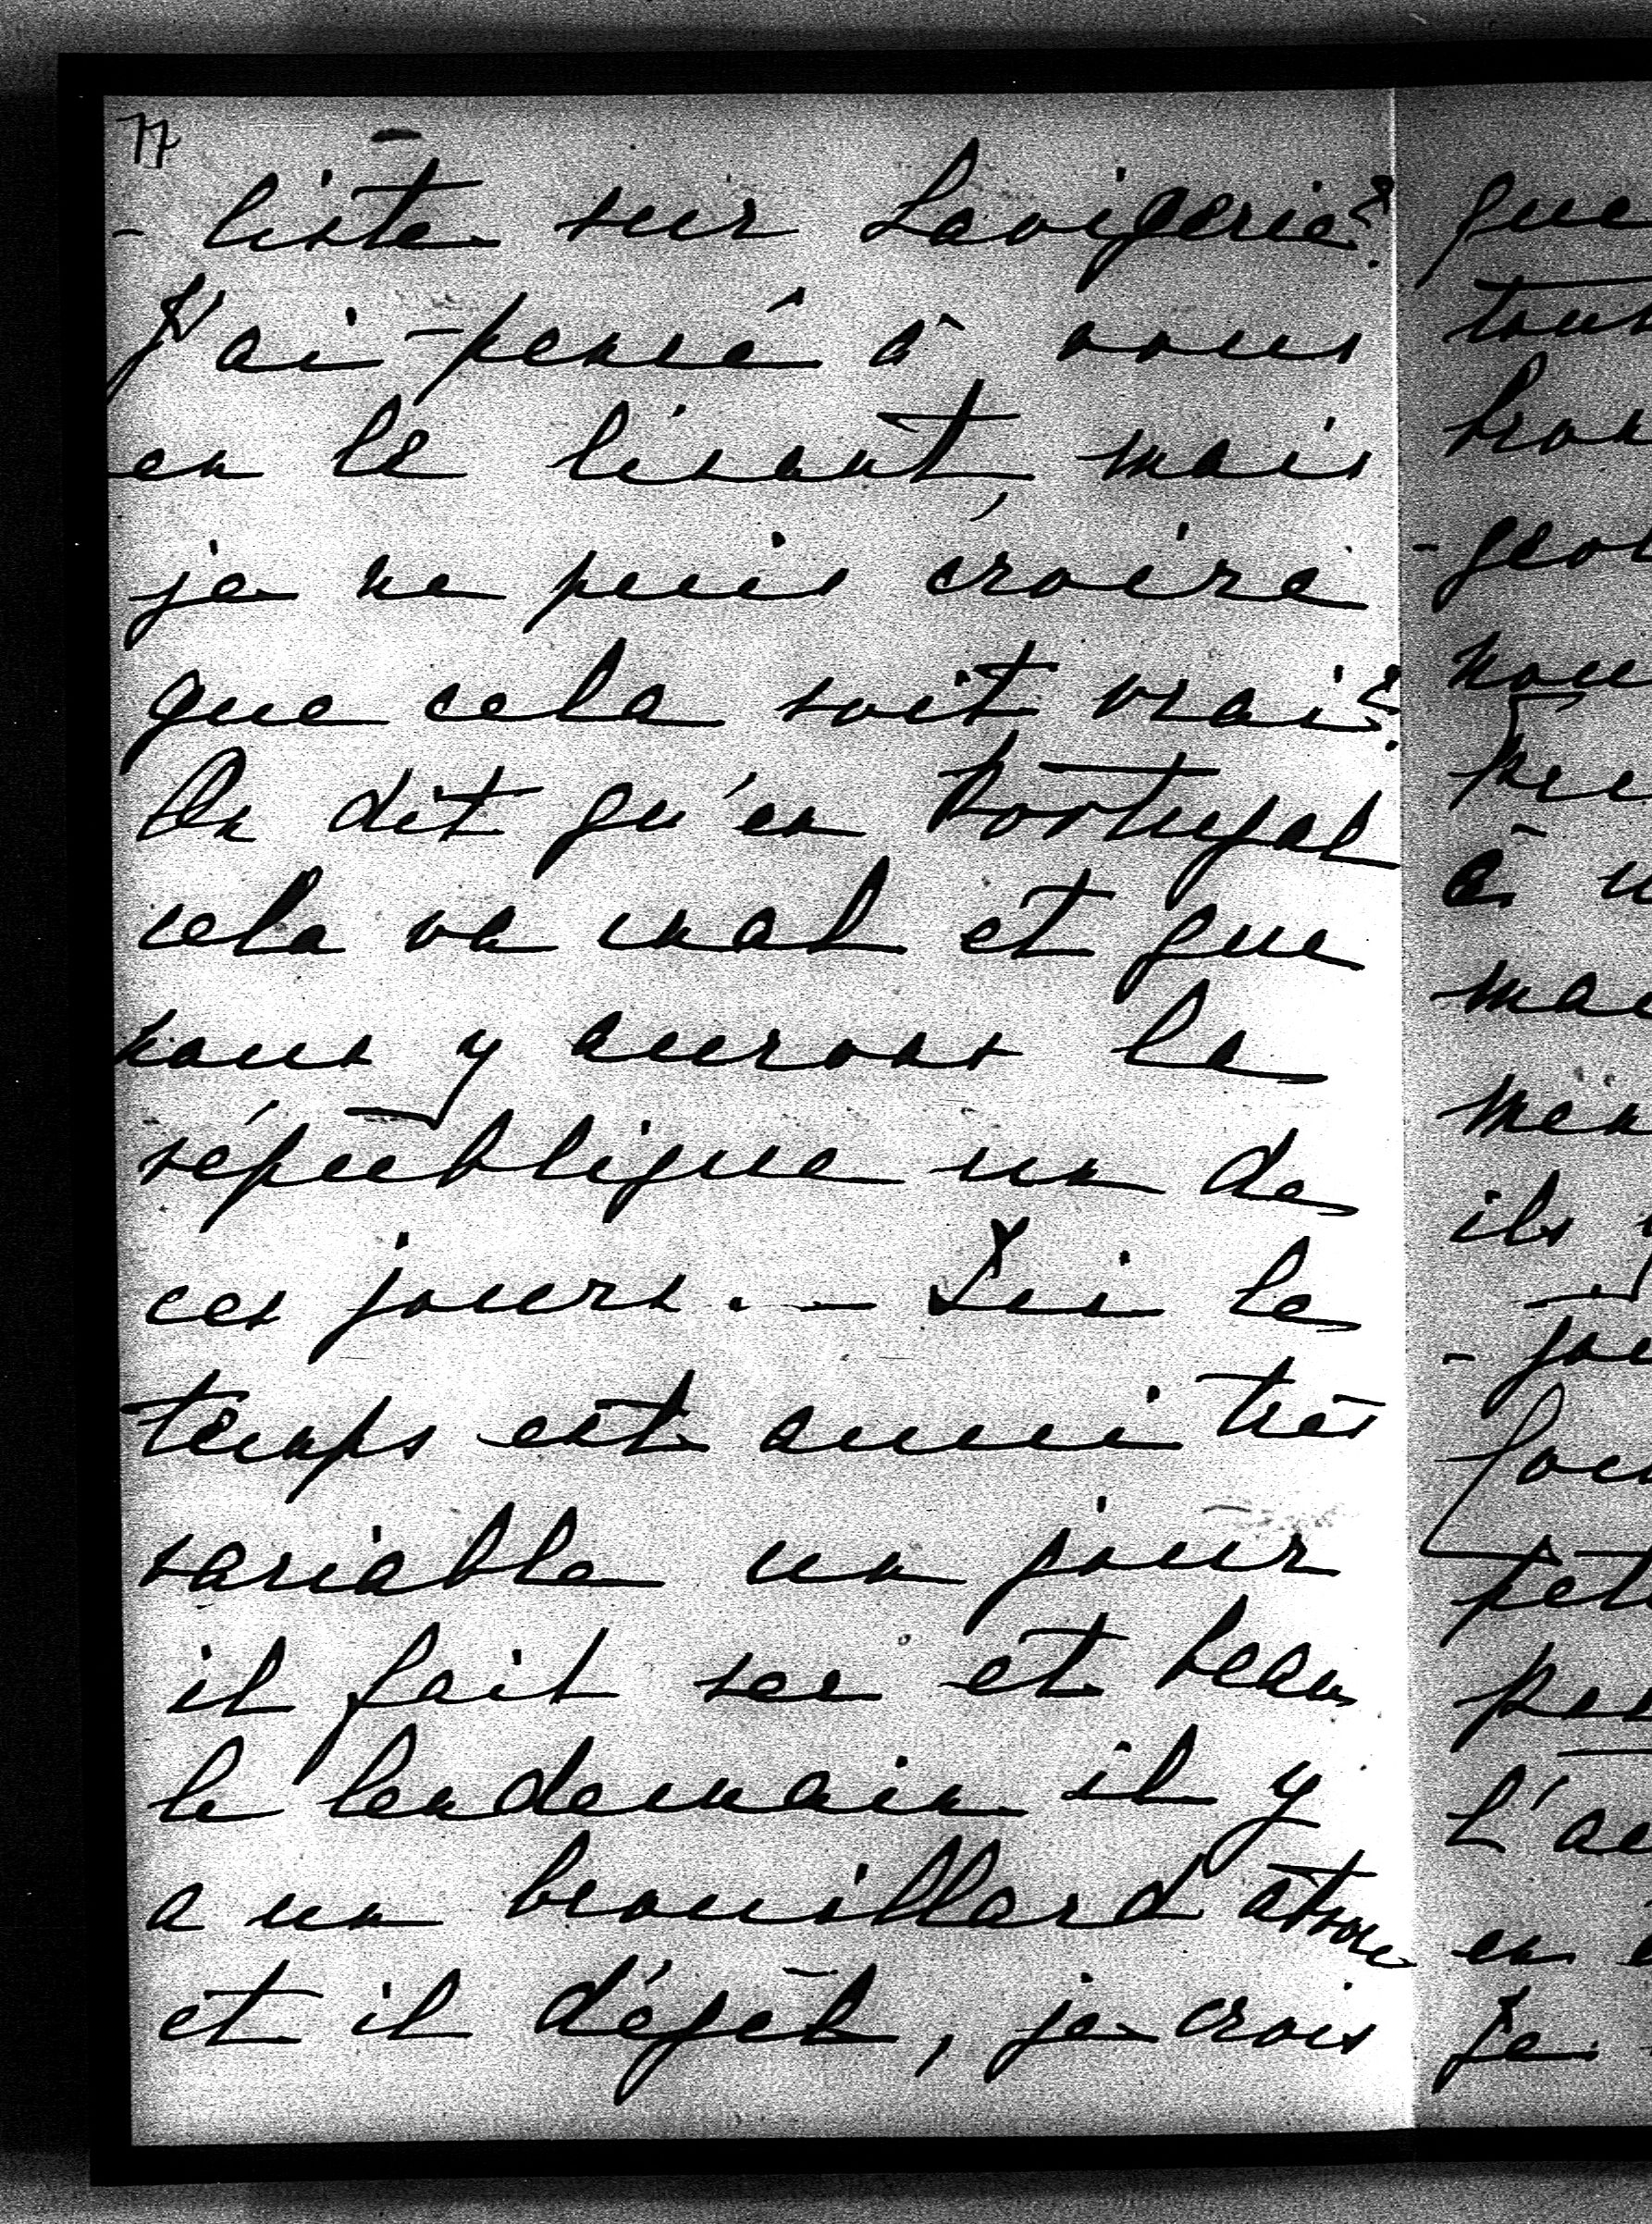 17
- liste sur Lavigerie?
J'ai pensé à vous
en le lisant, mais
je ne puis croire
que cela soit vrai?
On dit qu'en Portugal
cela va mal et que
nous y aurons la
république un de
ces jours. - Ici le
temps est aussi très
variable un jour
il fait sec et beau
le lendemain il y
a un brouillard atroce
et il dégèl, je crois
que
nou
à
ils
L'a
en
Je